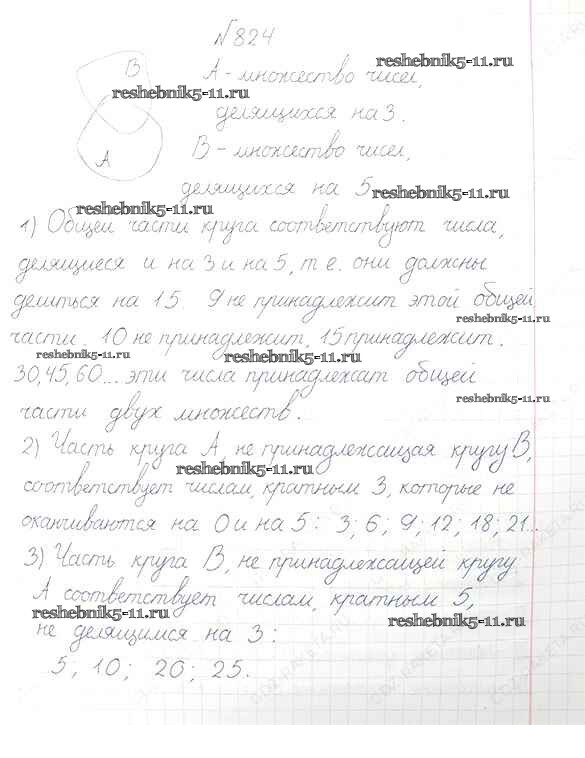 №824
B
A - множество чисел,
reshebnik5-11.ru
reshebnik5-11.ru
делящихся на 3.
B - множество чисел,
A
делящихся на 5
reshebnik5-11.ru
reshebnik5-11.ru
1) Общей части круга соответствуют числа,
делящиеся и на 3 и на 5, т е. они должны
делиться на 15. 9 не принадлежит этой общей
reshebnik5-11.ru
части. 10 не принадлежит, 15 принадлежит.
reshebnik5-11.ru
reshebnik5-11.ru
30, 45, 60... эти числа принадлежат общей
reshebnik5-11.ru
части двух множеств.
2) Часть круга A, не принадлежащая кругу B,
reshebnik5-11.ru
соответствует числам, кратным 3, которые не
оканчиваются на 0 и на 5: 3; 6; 9; 12; 18; 21...
3) Часть круга B, не принадлежащей кругу
A соответствует числам, кратным 5,
reshebnik5-11.ru
reshebnik5-11.ru
не делящимся на 3:
5; 10; 20; 25.